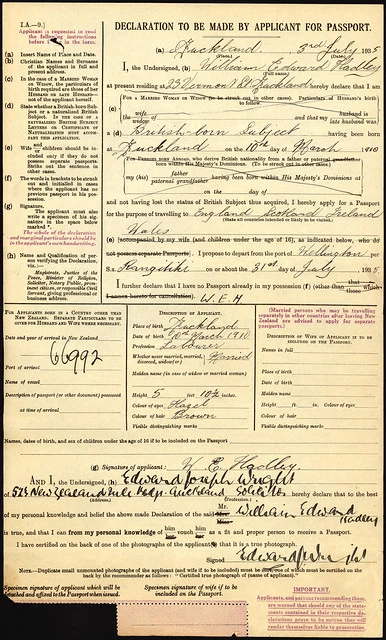 I.A.—9.]
DECLARATION TO BE MADE BY APPLICANT FOR PASSPORT.
Applicant is requested to read the following instructions before filling in the form.
(a) Insert Name of Place and Date.
(b) Christian Names and Surname of the applicant in full and present address.
(c) In the case of a Married Woman or Widow, the particulars of birth required are those of her Husband or late Husband—not of the applicant herself.
(d) State whether a British-born Subject or a naturalized British Subject.
(e) Wife or children should be included only if they do not possess separate passports. Strike out the sentence in other cases.
(f) The words in brackets to be struck out and initialled in cases where the applicant has no previous passport in his possession.
(g) Signature.
The applicant must also write a specimen of his signature in the space below marked *.
The whole of the declaration and marginal particulars should be in the applicant's own handwriting.
(h) Name and Qualification of person verifying the Declaration, viz.:—
Magistrate, Justice of the Peace, Minister of Religion, Solicitor, Notary Public, prominent citizen, or responsible Civil Servant, giving professional or business address.
(a) Auckland 3rd July 1935
I, the Undersigned, (b) William Edward Hadley
at present residing at 23 Vernon St Auckland hereby declare that I am
For a Married Woman or Widow (to be struck out in other cases). Particulars of Husband's birth to follow.
(c) the wife and that my husband is
late husband was
a (d) British-born Subject having been born at
Auckland on the 10th day of March 1910
my (his) father having been born within His Majesty's Dominions at
paternal grandfather
on the day of
and not having lost the status of British Subject thus acquired, I hereby apply for a Passport
for the purpose of travelling to England Scotland Ireland
Wales
(e) [accompanied by my wife (and children under the age of 16), as indicated below, who do
not possess separate Passports]. I propose to depart from the Port of Wellington per
S.s. Rangitiki on or about the 31st day of July 1935.
I further declare that I have no Passport already in my possession (f) (other than that which
I annex hereto for cancellation). W.E.H
For Applicants born in a Country other than New Zealand. Separate Particulars to be given for Husband and Wife where necessary.
Date and year of arrival in New Zealand
66992
Port of arrival
Name of vessel
Description of passport (or other document) possessed
at time of arrival
Description of Applicant.
Place of birth Auckland
Date of birth 10th March 1910
Profession Labourer
Whether never married, married, divorced, widowed Married
Maiden name (in case of widow or married woman)
Height 5 feet 10½ inches.
Colour of eyes Hazel
Colour of hair Brown
Visible distinguishing marks
Description of Wife of Applicant if to be included on the Passport.
Names in full
Place of birth
Date of birth
Maiden name
Height ft. in. Colour of eyes
Colour of hair
Visible distinguishing marks
Names, dates of birth, and sex of children under the age of 16 if to be included on the Passport
(g) Signature of applicant: W. E. Hadley.
And I, the Undersigned, (h) Edward Joseph Wright
of 529 New Zealand Auckland Solicitor hereby declare that to the best
(Address.) (Profession.)
of my personal knowledge and belief the above made Declaration of the said Mr. William Edward Hadley
is true, and that I can from my personal knowledge of him vouch him as a fit and proper person to receive a Passport.
I have certified on the back of one of the photographs of the applicant that it is a true photograph.
Signed Edward J Wright
Specimen signature of applicant which will be detached and affixed to the Passport when issued.
Specimen signature of wife if to be included on the Passport.
IMPORTANT.
Applicants, and persons recommending them, are warned that should any of the statements contained in their respective declarations prove to be untrue they will render themselves liable to prosecution.